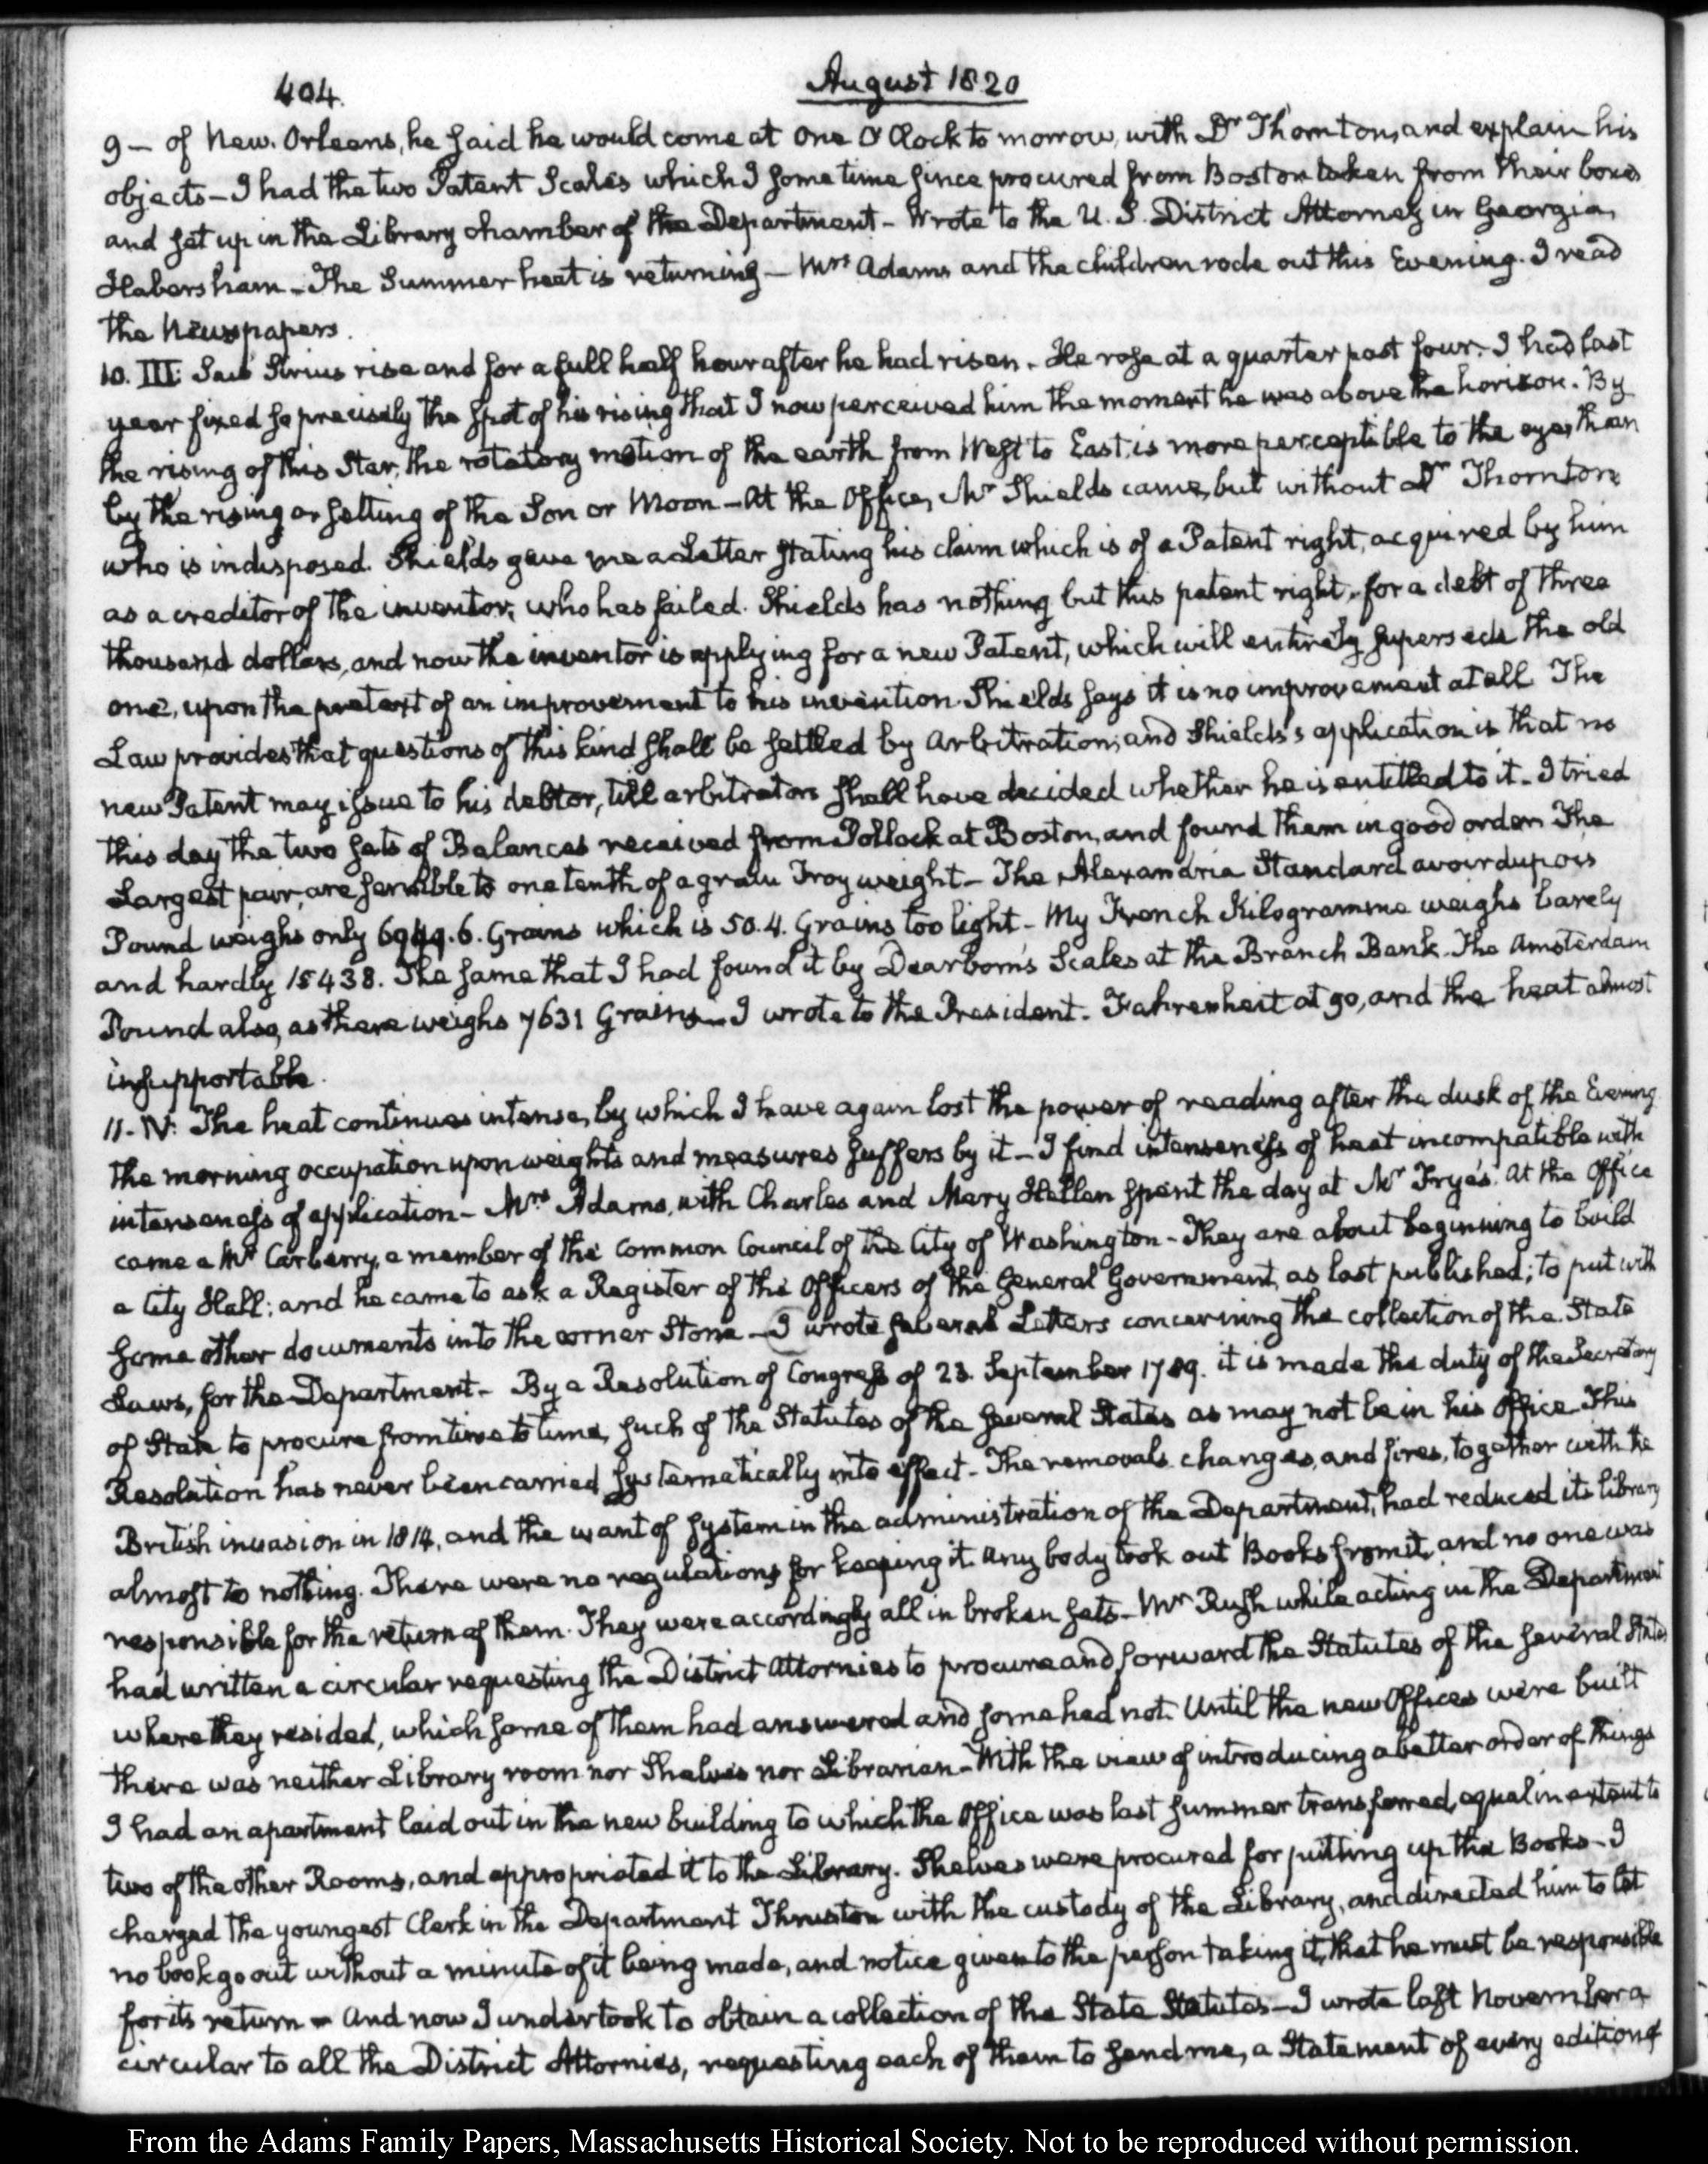 404.
August 1820
9 — of New. Orleans, he said he would come at One O'Clock to morrow, with Dr Thornton, and explain his
objects — I had the two Patent Scales which I sometime since procured from Boston taken from their boxes
and set up in the Library chamber of the Department — Wrote to the U. S. District Attorney in Georgia,
Habersham — The Summer heat is returning — Mrs Adams and the children rode out this Evening. I read
the Newspapers.
10. III. Saw Sirius rise and for a full half hour after he had risen. He rose at a quarter past four. I had last
year fixed so precisely the spot of his rising that I now perceived him the moment he was above the horizon. By
the rising of this Star, the rotatory motion of the earth from West to East, is more perceptible to the eye, than
by the rising or setting of the Son or Moon — At the Office, Mr Shields came, but without Dr Thornton
who is indisposed. Shields gave me a Letter stating his claim which is of a Patent right, acquired by him
as a creditor of the inventor, who has failed. Shields has nothing but this patent right, for a debt of three
thousand dollars, and now the inventor is applying for a new Patent, which will entirely supersede the old
one, upon the pretext of an improvement to his invention. Shields says it is no improvement at all. The
Law provides that questions of this kind shall be settled by arbitration; and Shields's application is that no
new Patent may issue to his debtor, till arbitrators shall have decided whether he is entitled to it — I tried
this day the two sets of Balances received from Pollock at Boston, and found them in good order. The
Largest pair, are sensible to one tenth of a grain Troy weight — The Alexandria Standard avoirdupois
Pound weighs only 6949.6. Grains which is 50.4. Grains too light — My French Kilogramme weighs barely
and hardly 15438. The same that I had found it by Dearborn's Scales at the Branch Bank. The Amsterdam
Pound also, as there weighs 7631 Grains — I wrote to the President. Fahrenheit at 90, and the heat almost
insupportable.
11. IV. The heat continues intense, by which I have again lost the power of reading after the dusk of the Evening.
the morning occupation upon weights and measures suffers by it — I find intenseness of heat incompatible with
intenseness of application — Mrs Adams, with Charles and Mary Hellen spent the day at Mr Frye's. At the Office
came a Mr Carberry, a member of the Common Council of the City of Washington — They are about beginning to build
a City Hall: and he came to ask a Register of the Officers of the General Government, as last published; to put with
some other documents into the corner Stone — I wrote several Letters concerning the collection of the State
Laws, for the Department. By a Resolution of Congress of 23. September 1789. it is made the duty of the Secretary
of State to procure from time to time, such of the Statutes of the several States as may not be in his Office. This
Resolution has never been carried systematically into effect — The removals, changes, and fires, together with the
British invasion in 1814, and the want of system in the administration of the Department, had reduced its library
almost to nothing. There were no regulations for keeping it. Any body took out Books from it, and no one was
responsible for the return of them. They were accordingly all in broken sets — Mr Rush while acting in the Department
had written a circular requesting the District Attornies to procure and forward the Statutes of the several States
where they resided, which some of them had answered and some had not. Until the new Offices were built
there was neither Library room nor Shelves nor Librarian — With the view of introducing a better order of things
I had an apartment laid out in the new building to which the Office was last summer transferred, equal in extent to
two of the other Rooms, and appropriated it to the Library. Shelves were procured for putting up the Books — I
charged the youngest Clerk in the Department Thruston with the custody of the Library, and directed him to let
no book go out without a minute of it being made, and notice given to the person taking it, that he must be responsible
for its return — And now I undertook to obtain a collection of the State Statutes — I wrote last November a
circular to all the District Attornies, requesting each of them to send me, a Statement of every edition of
From the Adams Family Papers, Massachusetts Historical Society. Not to be reproduced without permission.